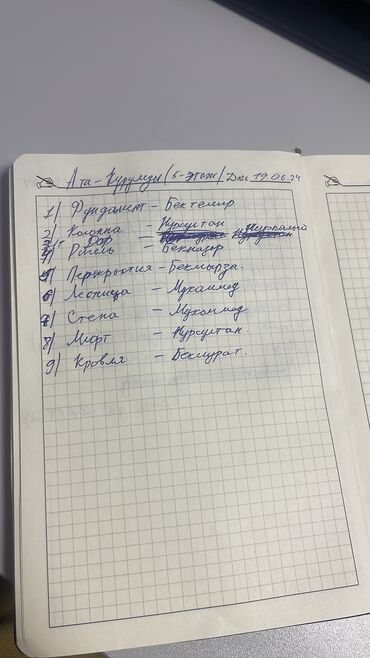 Ата-Курулуш (5-этаж) Дата 19.06.24
1) Фундамент - Бектемир
2) Колонна - Нурсултан
3) - Нурсултан
4) Ригель - Бекназар
5) Перекрытия - Бекмырза.
6) Лестница - Мухаммед
7) Стена - Мухаммед
8) Лифт - Нурсултан.
9) Кровля - Бекмурат.